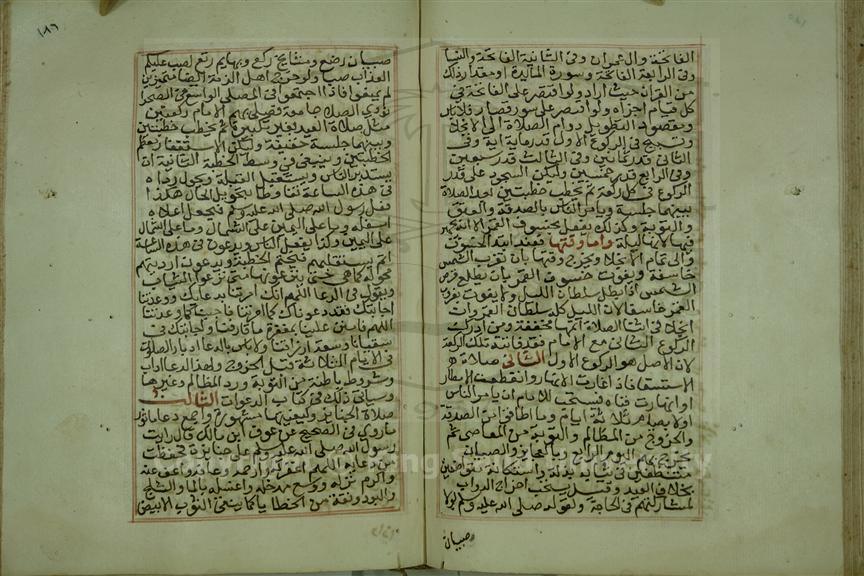 الفاتحة وال عمران وفى الثانية الفاتحة والنسا
وفى الرابعة الفاتحة وسورة المايدة اومقدار ذلك
من القران حيث اراد ولو اقتصر على الفاتحة فى
كل قيام اجزاه ولو اقتصر على سور قصار فلا باس
ومقصود التطويل دوام الصلاة الى الانجلا
ويسبح فى الركوع الاول قدر ماية اية وفى
الثانى قدر ثمانين وفى الثالث قدر سبعين
وفى الرابع قدر خمسين وليكن السجود على قدر
الركوع فى كل ركعة ثم يخطب خطبتين بعد الصلاة
بينهما جلسة ويامر الناس بالصدقة والعتق
والتوبة وكذلك يفعل بخسوف القمر الا انه يجهر
فيها لانها ليلة واما وقتها فعند ابتدا الخسوف
الى تمام الانجلا ويخرج وقتها بان تغرب الشمس
كاسفة ويفوت خسوف القمر بان يطلع قرص
الشمس اذ يبطل سلطان الليل ولا يفوت بغروب
القمر خاسفا لان الليل كله سلطان القمر وان
انجلا فى اثنا الصلاة اتمها مخففة ومن ادرك
الركوع الثانى مع الامام فقد فاتته تلك الركعة
لان الاصل هو الركوع الاول الثانى صلاة
الاستسقا فاذا غارت الانهار وانقطعت الامطار
او انهارت قناه فيستحب للامام ان يامر الناس
اولا بصيام ثلاثة ايام وما اطاقوا من الصدقة
والخروج من المظالم والتوبة من المعاصى ثم
يخرج بهم اليوم الرابع وبالعجايز والصبيان
متنظفين فى ثياب بذلة واستكانة متواضعين
بخلاف العيد وقيل يستحب اخراج الدواب
لمشاركتهم فى الحاجة ولقوله صلى الله عليه وسلم لولا
صبيان
١٨٦
صبيان رضع ومشايخ ركع وبهايم رتع لصب عليكم
العذاب صبا ولو خرج اهل الذمة ايضا متميزين
لم يمنعوا فاذا اجتمعوا فى المصلى الواسع فى الصحرا
نودى الصلاة جامعة فيصلى بهم الامام ركعتين
مثل صلاة العيد بغير تكبير ثم يخطب خطبتين
وبينهما جلسة خفيفة وليكن الاستغفار معظم
الخطبتين وينبغى فى وسط الخطبة الثانية ان
يستدبر الناس ويستقبل القبلة ويحول رداه
فى هذه الساعة تفاولا بتحويل الحال هكذا
فعل رسول الله صلى الله عليه وسلم فيجعل اعلاه
اسفله وما على اليمين على الشمال وما على الشمال
على اليمين وكذا يفعل الناس ويدعون فى هذه الساعة
ثم يستقبلهم فيختم الخطبة ويدعون ارديتهم
محولة كما هى حتى ينزعوها متى نزعوا الثياب
ويقول فى الدعا اللهم انك امرتنا بدعايك ووعدتنا
اجابتك فقد دعوناك كما امرتنا فاجبنا كما وعدتنا
اللهم فامنن علينا بمغفرة ما قارفنا واجابتك فى
سقيانا وسعة ارزاقنا ولا باس بالدعا ادبار الصلوات
فى الايام الثلاثة قبل الخروج ولهذا الدعا اداب
وشروط باطنة من التوبة ورد المظالم وغيرها
وسياتى ذلك فى كتاب الدعوات الثالث
صلاة الجنايز وكيفيتها مشهورة واجمع دعا ماثور
ماروى فى الصحيح عن عوف ابن مالك قال رايت
رسول الله صلى الله عليه وسلم على جنازة فحفظت
من دعايه اللهم اغفر له وارحمه وعافه واعف عنه
واكرم نزله ووسع مدخله واغسله بالما والثلج
والبرد ونقه من الخطايا كما ينقى الثوب الابيض